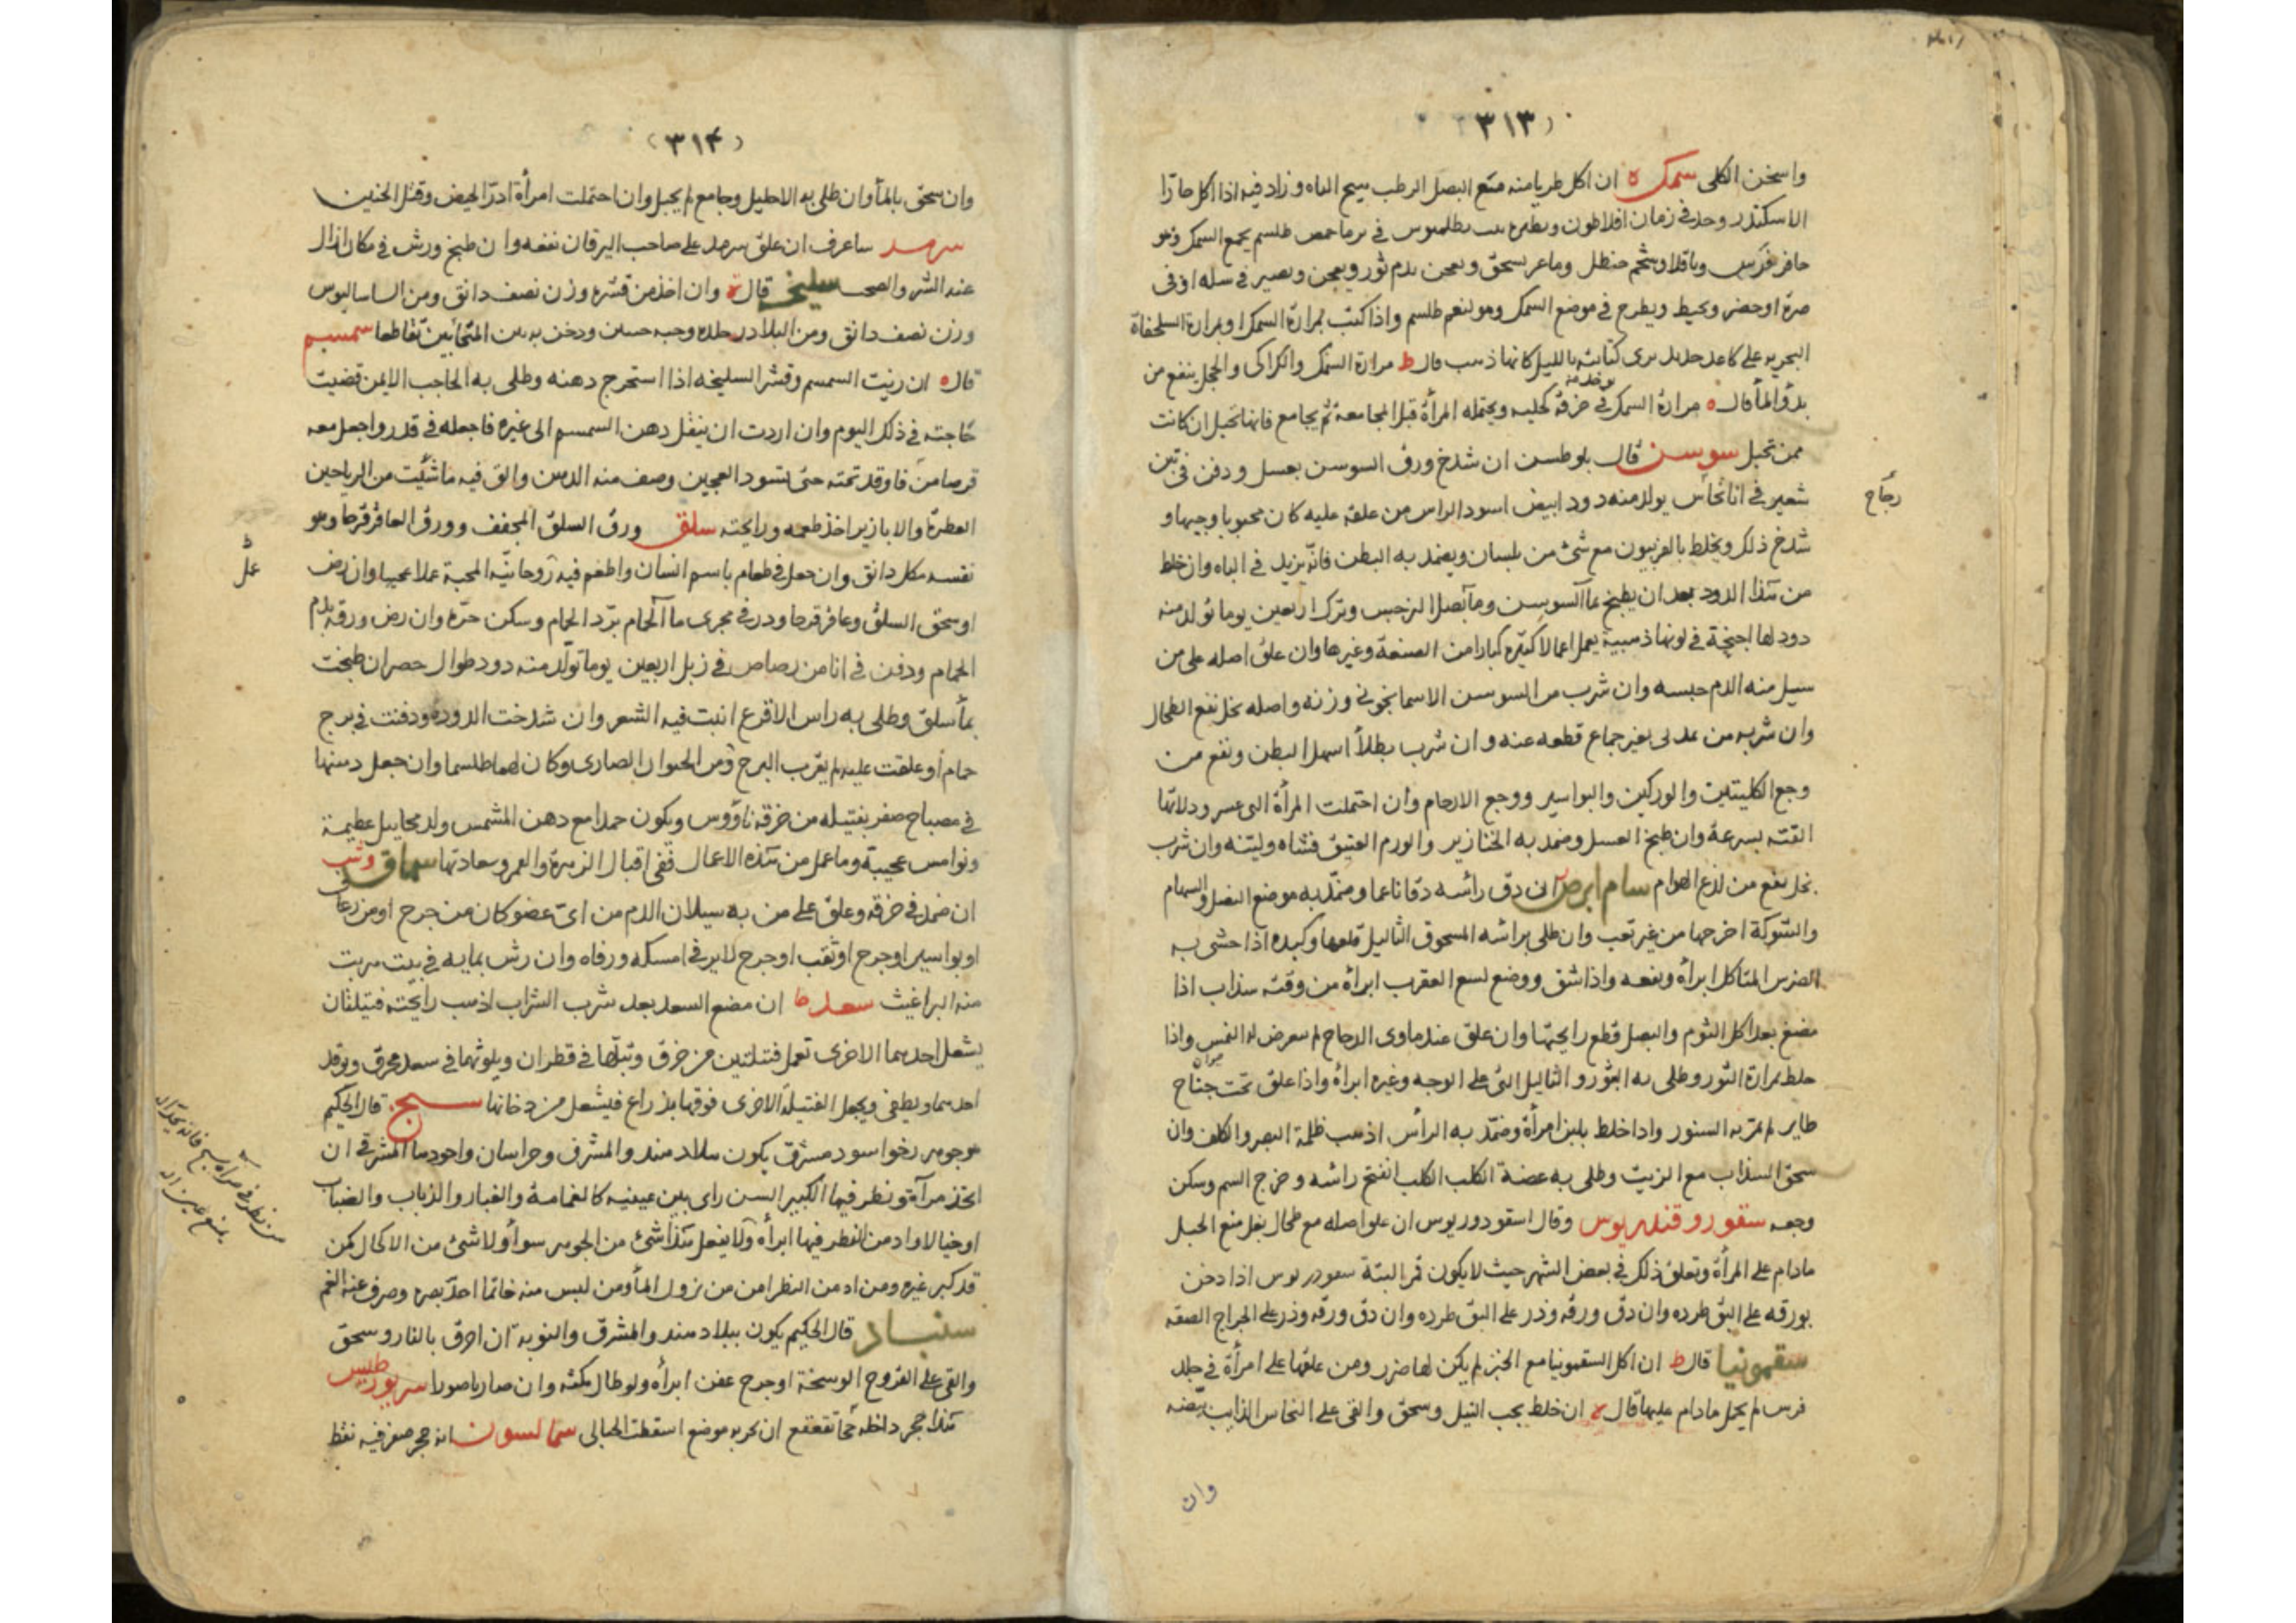 (٣١٣)
واسخن الكلى سمك ه ان اكل طريا منه مع البصل الرطب هيج الباه وزاد فيه اذا اكل حارا
الاسكندر وجد فى زمان افلاطون طلسم يجمع السمك وهو
حافر فرس وباقلا وشحم حنظل وماعز يسحق ويعجن بدم ثور ويعجن ويصير فى سله او فى
صرة او ويخيط ويطرح فى موضع السمك وهو لنعم طلسم واذا كتب بمرارة السمك او بمرارة السلحفاة
البحرية على كاغد جديد يرى كتابته بالليل كانها ذهب قال ط مرارة السمك والكراكى والحجل ينفع من
بدؤ المأ قال ه مرارة السمك فى خرقة ويحتمله المرأة قبل المجامعة ثم يجامع فانها تحبل ان كانت
ممن تحبل سوسن قال ان شدخ ورق السوسن بعسل ودفن فى تبن
زجاج
شعير فى انا نحاس يولد منه دود ابيض اسود الراس من علقه عليه كان محبوبا وجيها و
شدخ ذلك ويخلط بالفربيون مع شئ من بلسان ويضمد به البطن فانه يزيد فى الباه وان خلط
من هذا الدود بعد ان يطبخ بما السوسن وما بصل النرجس وترك اربعين يوما تولد منه
دود لها اجنحة فى لونها ذهبية يعمل اعمالا كثيرة كبارا من الصنعة وغيرها وان علق اصله على من
سيل منه الدم حبسه وان شرب من السوسن الاسمانجونى وزنه واصله بخل نفع الطحال
وان شربه من بغير جماع قطعه عنه وان شرب بطلأ اسهل البطن ونفع من
وجع الكليتين والوركين والبواسير ووجع الارحام وان احتملت المرأة التى عسر ودلاتها
القته بسرعة وان طبخ العسل وضمد به الخنازير والورم العتيق فشاه ولينه وان شرب
بخل نفع من لذع الهوام سام ابرص ان دق راسه دقا ناعما وضمد به موضع النصل والسهام
والشوكة اخرجها من غير تعب وان طلى براسه المسحوق الثاليل قلعها وكبده اذا حشى به
الضرس المتاكل ابرأه ونفعه واذا شق ووضع لسع العقرب ابرأه من وقته سذاب اذا
مضغ بعد اكل الثوم والبصل قطع رايحتها وان علق عند ماوى الدجاج لم يعرض له النمس واذا
خلط بمرارة الثور وطلى به البثور والثاليل التى على الوجه وغيره ابرأه واذا علق تحت جناح
طاير لم يقربه السنور واذا خلط بلبن امرأة وضمد به الرأس اذهب ظلمة البصر والكلف وان
سحق السذاب مع الزيت وطلى به عضة الكلب الكلب انفتح راسه وخرج السم وسكن
وجعه سقورو قندريوس وقال اسقودوريوس ان علق اصله مع طحال بغل منع الحبل
مادام على المرأة وتعلق ذلك فى بعض الشهر حيث لا يكون قمر البتة اذا دخن
بورقه على البق طرده وان دق ورقه وذر على البق طرده وان دق ورقه وذر على الجراح الصقه
سقمونيا قال ط ان اكل السقمونيا مع الخبز لم يكن لها ضرر ومن علقها على امرأة فى جلد
فرس لم يحبل مادام عليها قال ان خلط بحب النيل وسحق والقى على النحاس الذايب بيضه
وان
(٣١٤)
وان سحق بالمأ وان طلى به الاحليل وجامع لم يحبل وان احتملت امرأة ادر الحيض وقتل الجنين
سرمد ساعرف ان علق سرمد على صاحب اليرقان نفعه وان طبخ ورش فى مكان ازال
عنه الشر والصخب سليخه قال وان اخذ من قشره وزن نصف دانق ومن الساساليوس
وزن نصف دانق ومن البلادر وحبه ودخن به بين المتحابين تقاطعا سمسم
قال ه ان زيت السمسم وقشر السليخه اذا استخرج دهنه وطلى به الحاجب الايمن قضيت
حاجته فى ذلك اليوم وان اردت ان ينقل دهن السمسم الى غيره فاجعله فى قدر واجعل معه
قرصا من فاوقد تحته حتى يسود العجين وصف منه الدهن والق فيه ما شئت من الرياحين
العطرة والابازير اخذ طعمه ورايحته سلق ورق السلق المجفف وورق العاقرقرحا وهو
نفسه مكل دانق وان جعل فى طعام باسم انسان واطعم فيه روحانية المحبة عملا عجيبا وان رض
عل
او سحق السلق وعاقرقرحا وذر فى مجرى ما الحمام برد الحمام وسكن حره وان رض ورقه بدم
الحمام ودفن فى انا من رصاص فى زبل اربعين يوما تولد منه دود طوال خضر ان طبخت
بمأ سلق وطلى به راس الاقرع انبت فيه الشعر وان شدخت الدوده ودفنت فى برج
حمام او علقت عليه لم يقرب البرج من الحيوان الضارى وكان لها طلسما وان جعل دهنها
فى مصباح صفر بفتيلة من خرقة ناؤوس ويكون حملا مع دهن المشمش ولد مخاييل عظيمة
ونواميس عجيبة وما عمل من هذه الاعمال ففى اقبال الزهرة والقمر وسعادتها سماق وشب
ان ضمد فى خرقه وعلق على من به سيلان الدم من اى عضو كان من جرح او من رعاف
او بواسير او جرح او ثقب او جرح لا يرقى امسكه ورفاه وان رش بمايه فى بيت هربت
منه البراغيث سعد ط ان مضغ السعد بعد شرب الشراب اذهب رايحته فتيلتان
يشعل احدهما الاخرى تعمل فتيلتين من خرق وتبلها فى قطران ويلوثهما فى سعد محرق ويوقد
احدهما ويطفى ويجعل الفتيلة الاخرى فوقها بذراع فيشعل من دخانها سبج قال الحكيم
هو جوهر رخو اسود مشرق يكون ببلاد هند والمشرق وخراسان واجودها المشرقى ان
اتخذ مرآة ونظر فيها الكبير السن راى بين عينيه كالغمامة والغبار والذباب والضباب
او خيالا وادمن النظر فيها ابرأه ولا يفعل هذا شئ من الجوهر سواه ولا شئ من الاكحال لمن
قد كبر غيره ومن ادمن النظر امن من نزول المأ ومن لبس منه خاتما احد بصره وصرف عنه الغم
سنباد قال الحكيم يكون ببلاد هند والمشرق والنوبة ان احرق بالنار وسحق
والقى على القروح الوسخة او جرح عفن ابرأه ولو طال مكثه وان صار ناصورا
هذا حجر داخله تقعقع ان بحر به موضع اسقطت الحبالى انه حجر صفر فيه نقط